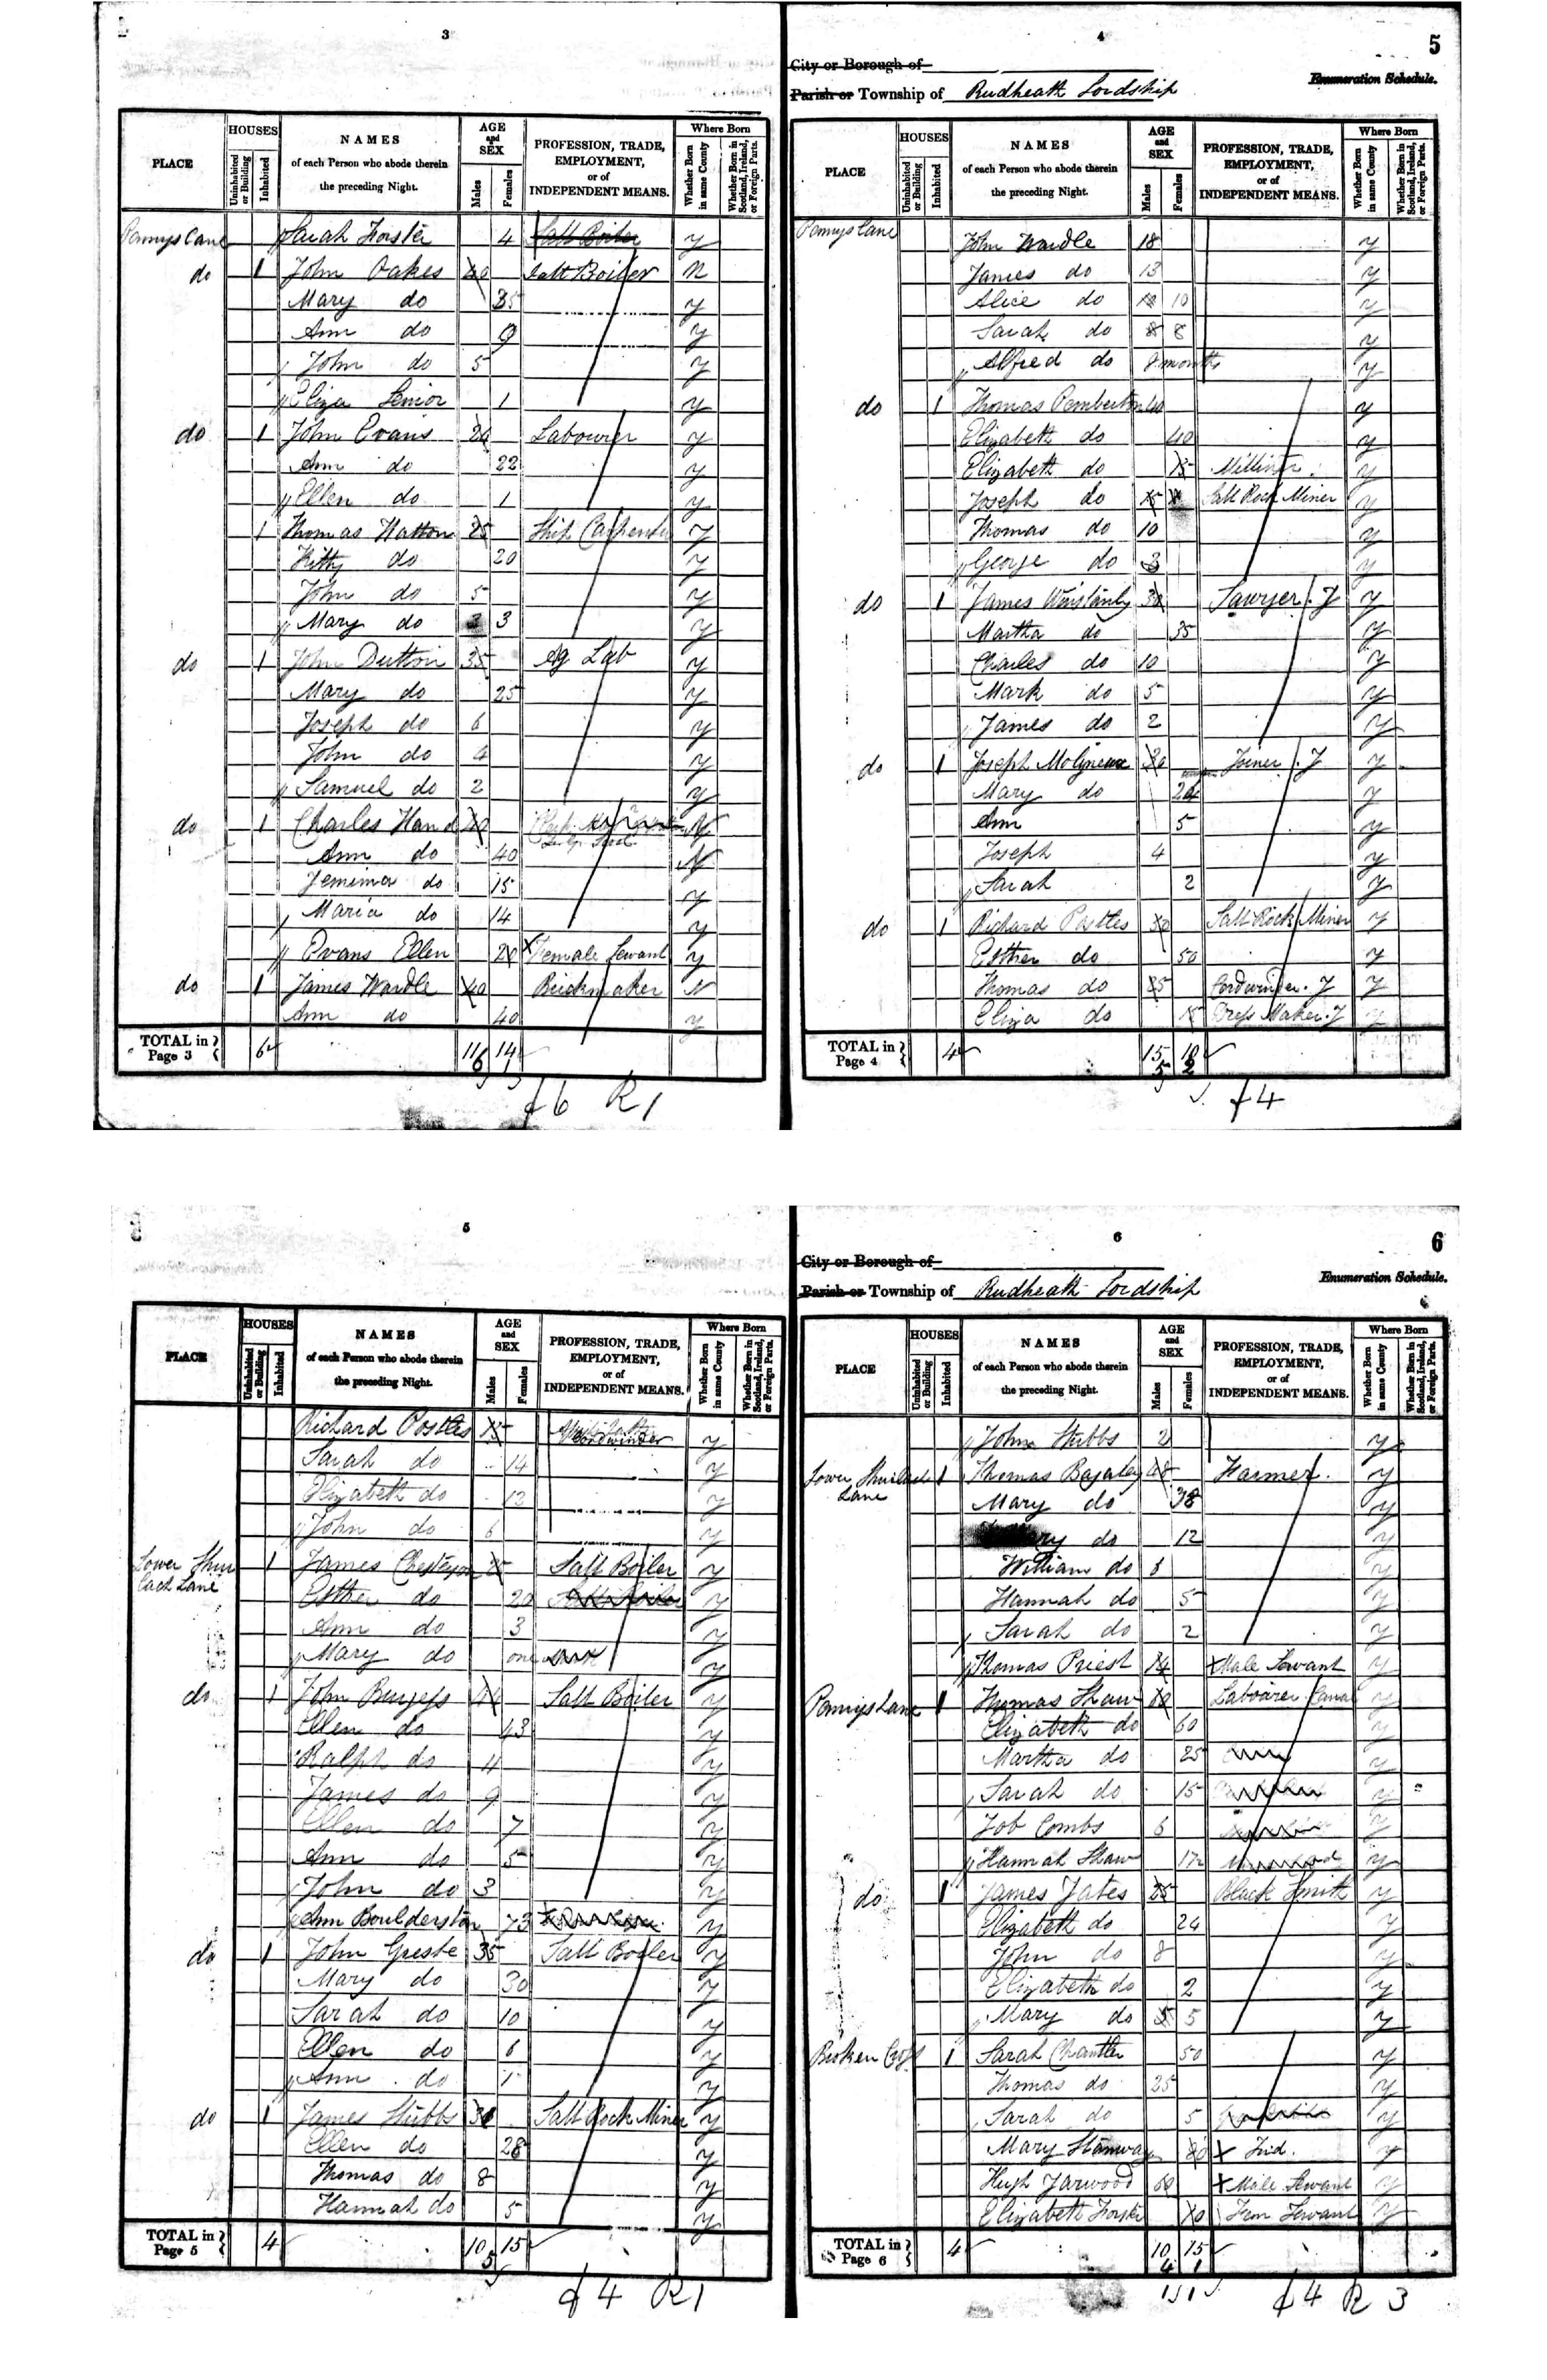 3
PLACE HOUSES Uninhabited or Building Inhabited NAMES of each Person who abode therein the preceding Night. AGE and SEX Males Females PROFESSION, TRADE, EMPLOYMENT, or of INDEPENDENT MEANS. Where Born Whether Born in same County Whether Born in Scotland, Ireland, or Foreign Parts.
Pennys Lane Sarah Forster 4 Salt Boiler y
do 1 John Oakes 40 Salt Boiler N
Mary do 35 y
Ann do 9 y
John do 5 y
Eliza Senior 1 y
do 1 John Evans 20 Labourer y
Ann do 22 y
Ellen do 1 y
1 Thomas Hatton 25 Ship Carpenter y
Kitty do 20 y
John do 5 y
Mary do 3 y
do 1 John Dutton 35 Ag Lab y
Mary do 25 y
Joseph do 6 y
John do 4 y
Samuel do 2 y
do 1 Charles Hand 40 N
Ann do 40 N
Jemima do 15 y
Maria do 14 y
Evans Ellen 20 Female Servant y
do 1 James Wardle 40 Brickmaker N
Ann do 40 y
TOTAL in Page 3 6 11 14
6 1
f6 R1
4
5
City or Borough of
Enumeration Schedule.
Parish or Township of Rudheath Lordship
PLACE HOUSES Uninhabited or Building Inhabited NAMES of each Person who abode therein the preceding Night. AGE and SEX Males Females PROFESSION, TRADE, EMPLOYMENT, or of INDEPENDENT MEANS. Where Born Whether Born in same County Whether Born in Scotland, Ireland, or Foreign Parts.
Pennys Lane John Wardle 18 y
James do 13 y
Alice do 10 10 y
Sarah do 8 8 y
Alfred do 8 months y
do 1 Thomas Pemberton 40 y
Elizabeth do 40 y
Elizabeth do 15 Milliner. y
Joseph do 15 Salt Rock Miner y
Thomas do 10 y
George do 3 y
do 1 James Winstanly 30 Sawyer. J y
Martha do 35 y
Charles do 10 y
Mark do 5 y
James do 2 y
do 1 Joseph Molyneux 30 Joiner. J y
Mary do 24 y
Ann 5 y
Joseph 4 y
Sarah 2 y
do 1 Richard Postles 50 Salt Rock Miner y
Esther do 50 y
Thomas do 25 Cordwinder. J y
Eliza do 15 Dress Maker. J y
TOTAL in Page 4 4 15 10
5 2
f4
5
PLACE HOUSES Uninhabited or Building Inhabited NAMES of each Person who abode therein the preceding Night. AGE and SEX Males Females PROFESSION, TRADE, EMPLOYMENT, or of INDEPENDENT MEANS. Where Born Whether Born in same County Whether Born in Scotland, Ireland, or Foreign Parts.
Richard Postles 15 Cordwinder y
Sarah do 14 y
Elizabeth do 12 y
John do 6 y
Lower Shurlach Lane 1 James Chesterson 25 Salt Boiler y
Esther do 20 y
Ann do 3 y
Mary do one y
do 1 John Burgess Salt Boiler y
Ellen do 43 y
Ralph do 11 y
James do 9 y
Ellen do 7 y
Ann do 5 y
John do 3 y
Ann Boulderston 73 y
do 1 John Greste 35 Salt Boiler y
Mary do 30 y
Sarah do 10 y
Ellen do 6 y
Ann do 1 y
do 1 James Stubbs 30 Salt Rock Miner y
Ellen do 28 y
Thomas do 8 y
Hannah do 5 y
TOTAL in Page 5 4 10 15
5
f4 R1
6
6
City or Borough of
Parish or Township of Rudheath Lordship
Enumeration Schedule.
PLACE HOUSES Uninhabited or Building Inhabited NAMES of each Person who abode therein the preceding Night. AGE and SEX Males Females PROFESSION, TRADE, EMPLOYMENT, or of INDEPENDENT MEANS. Where Born Whether Born in same County Whether Born in Scotland, Ireland, or Foreign Parts.
John Stubbs 2 y
Lower Shurlach Lane 1 Thomas Bazaley 48 Farmer. y
Mary do 38 y
Mary do 12 y
William do 8 y
Hannah do 5 y
Sarah do 2 y
Thomas Priest 14 Male Servant y
Pennys Lane 1 Thomas Shaw 60 Labourer Canal y
Elizabeth do 60 y
Martha do 25 y
Sarah do 15 y
Job Combs 6 y
Hannah Shaw 12 y
do 1 James Yates 25 Black Smith y
Elizabeth do 24 y
John do 8 y
Elizabeth do 2 y
Mary do 5 5 y
Broken Cross 1 Sarah Chantler 50 y
Thomas do 25 y
Sarah do 5 y
Mary Stanway 80 Ind. y
Hugh Yarwood 60 Male Servant y
Elizabeth Forster 20 Fem Servant y
TOTAL in Page 6 4 10 15
4 1
f4 R 3